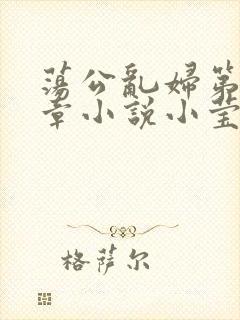 蕩公亂婦第
章小說小莹
格萨尔